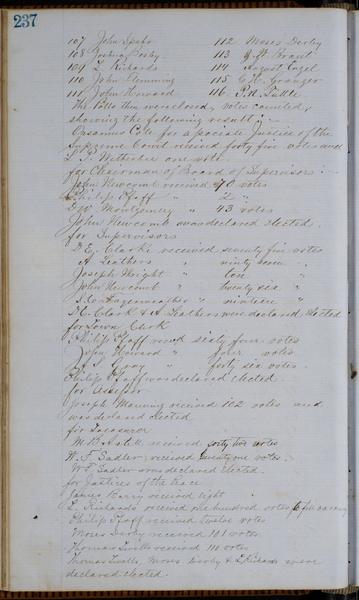 237
107 John Spahr 112 Moses Derby
108 Joshua Derby 113 Brant
109 L Richards 114 August Cazel
110 John Flemming 115 C. H. Granger
111 John Howard 116 P. N. Tuttle
The Polls then were closed, votes counted,
showing the following result; :-
Orsamus Cole for associate Justice of the
Supreme Court received forty five votes and
one vote
for Chairman of Board of Supervisors :-
John Newcomb received 70 votes
Philip Pfaff " 2 "
Montgomery " 43 votes
John Newcomb was declared elected.
for Supervisors
D. E. Clark received seventy five votes
A Leathers " ninty seven "
Joseph Wright " ten "
John Newcomb " twenty six "
" nineteen "
Clark & A Leathers were declared elected
for Town Clerk
Philip Pfaff received sixty four votes
John Howard " four votes
Gray " forty six votes.
Philip Pfaff was declared elected.
for Assessor
Joseph Manning received 102 votes and
was declared elected.
for Treasurer
received forty two votes
W. F. Sadler received seventy one votes.
W F Sadler was declared elected.
for Justices of the Peace
James Barry received eight
L. Richards received one hundred votes to fill vacancy
Philip Pfaff received twelve votes
Moses Derby received 101 votes.
Thomas received 110 votes
Thomas Moses Derby & L Richards were
declared elected.